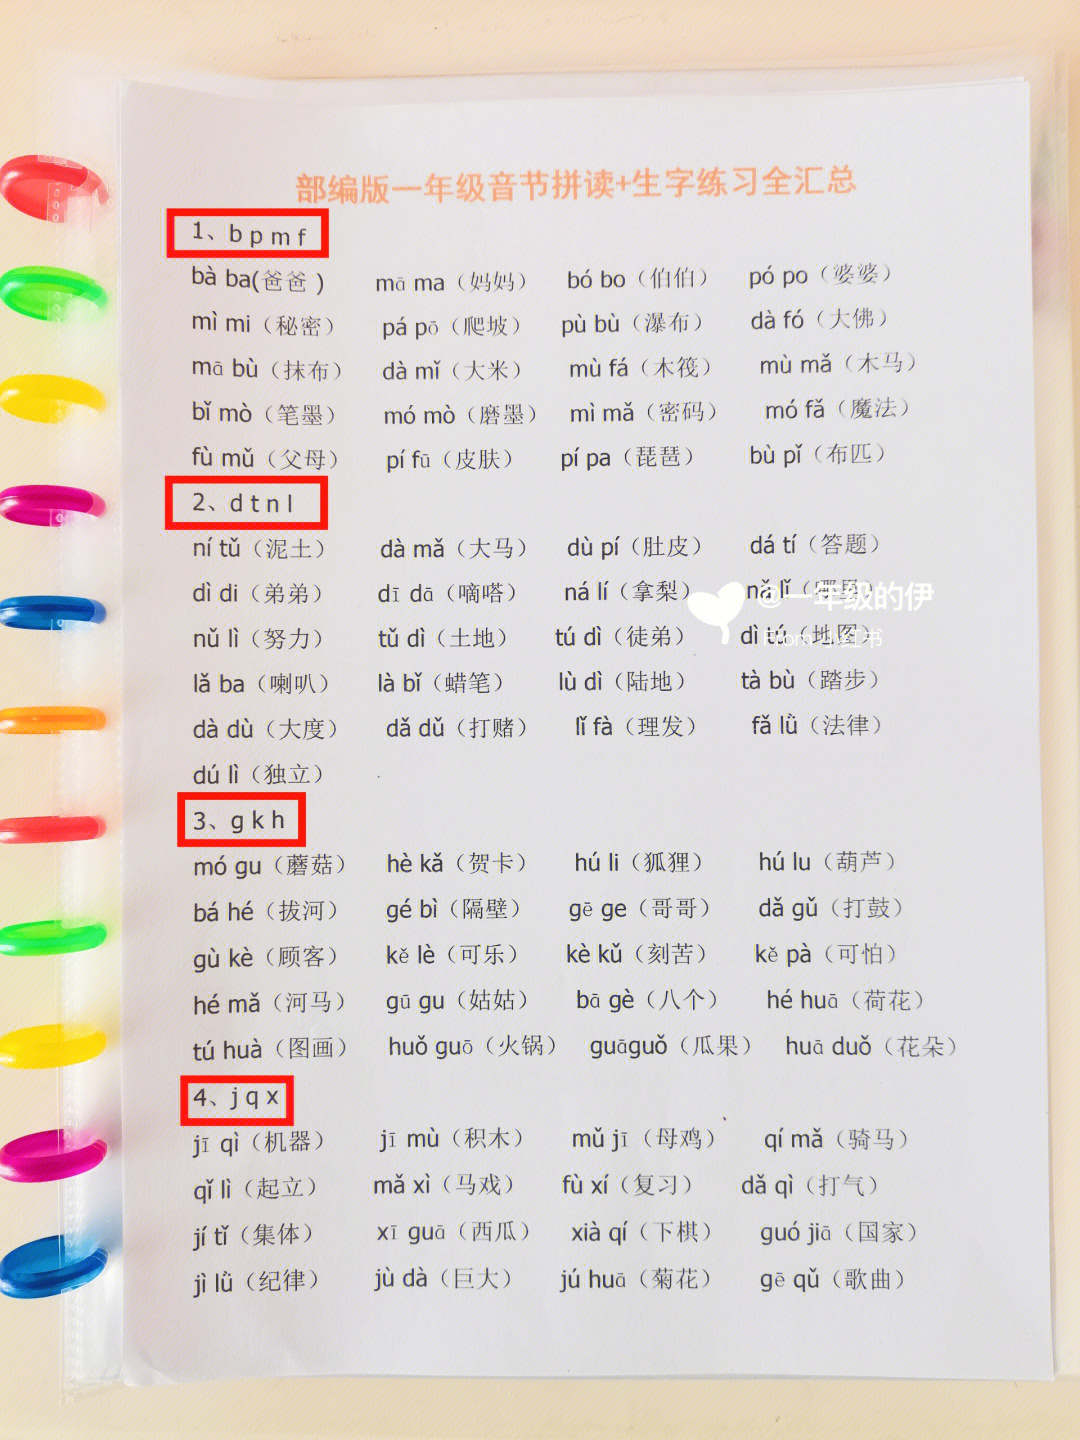 部编版一年级音节拼读+生字练习全汇总
1、b p m f
bà ba(爸爸 ) mā ma（妈妈） bó bo（伯伯） pó po（婆婆）
mì mi（秘密） pá pō（爬坡） pù bù（瀑布） dà fó（大佛）
mā bù（抹布） dà mǐ（大米） mù fá（木筏） mù mǎ（木马）
bǐ mò（笔墨） mó mò（磨墨） mì mǎ（密码） mó fǎ（魔法）
fù mǔ（父母） pí fū（皮肤） pí pa（琵琶） bù pǐ（布匹）
2、d t n l
ní tǔ（泥土） dà mǎ（大马） dù pí（肚皮） dá tí（答题）
dì di（弟弟） dī dā（嘀嗒） ná lí（拿梨） nǎ lǐ（哪里）
@一年级的伊
nǔ lì（努力） tǔ dì（土地） tú dì（徒弟） dì tú（地图）
From 小红书
lǎ ba（喇叭） là bǐ（蜡笔） lù dì（陆地） tà bù（踏步）
dà dù（大度） dǎ dǔ（打赌） lǐ fà（理发） fǎ lǜ（法律）
dú lì（独立）
3、g k h
mó gu（蘑菇） hè kǎ（贺卡） hú li（狐狸） hú lu（葫芦）
bá hé（拔河） gé bì（隔壁） gē ge（哥哥） dǎ gǔ（打鼓）
gù kè（顾客） kě lè（可乐） kè kǔ（刻苦） kě pà（可怕）
hé mǎ（河马） gū gu（姑姑） bā gè（八个） hé huā（荷花）
tú huà（图画） huǒ guō（火锅） guāguǒ（瓜果） huā duǒ（花朵）
4、j q x
jī qì（机器） jī mù（积木） mǔ jī（母鸡） qí mǎ（骑马）
qǐ lì（起立） mǎ xì（马戏） fù xí（复习） dǎ qì（打气）
jí tǐ（集体） xī guā（西瓜） xià qí（下棋） guó jiā（国家）
jì lǜ（纪律） jù dà（巨大） jú huā（菊花） gē qǔ（歌曲）